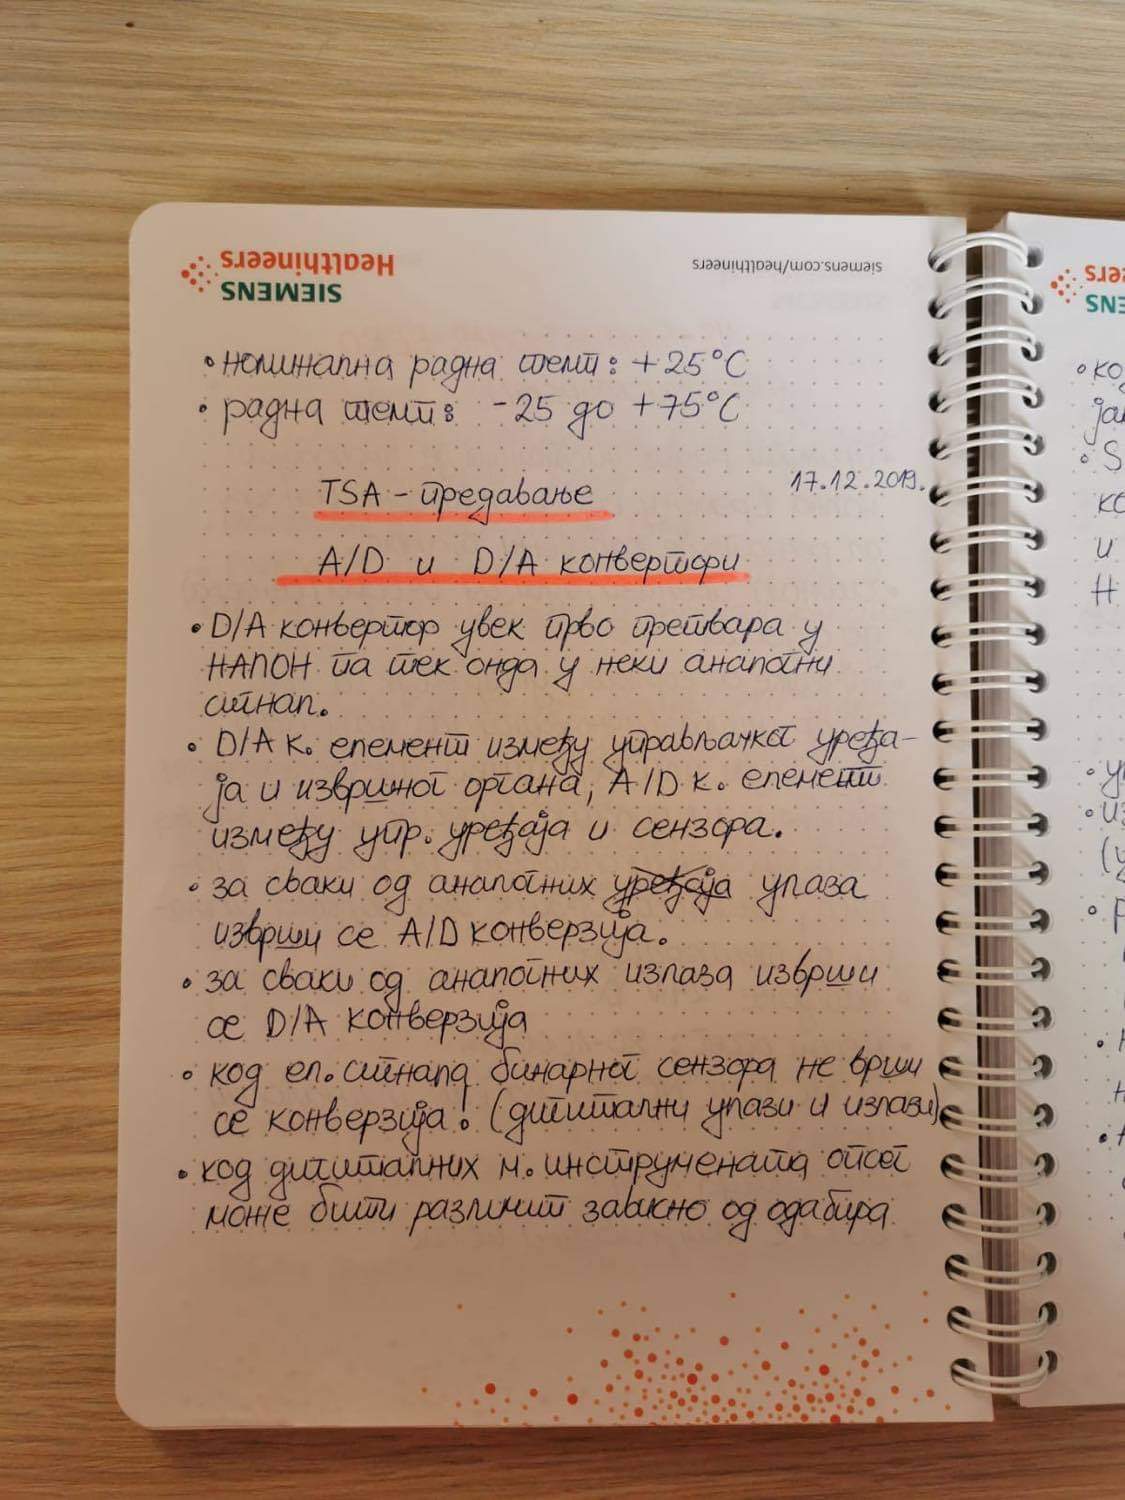 siemens.com/healthineers
SIEMENS
Healthineers
• номинална радна темп: +25°C
• радна темп: -25 до +75°C
17.12.2019.
TSA - предавање
A/D и D/A конвертори
• D/A конвертор увек прво претвара у
НАПОН па тек онда у неки аналогни
сигнал.
• D/A к. елемент између управљачког уређа-
ја и извршног органа, A/D к. елемент
између упр. уређаја и сензора.
• за сваки од аналогних уређаја улаза
изврши се A/D конверзија.
• за сваки од аналогних излаза изврши
се D/A конверзија
• код ел. сигнала бинарног сензора не врши
се конверзија! (дигитални улази и излази)
• код дигиталних м. инструмената опсег
може бити различит зависно од одабира